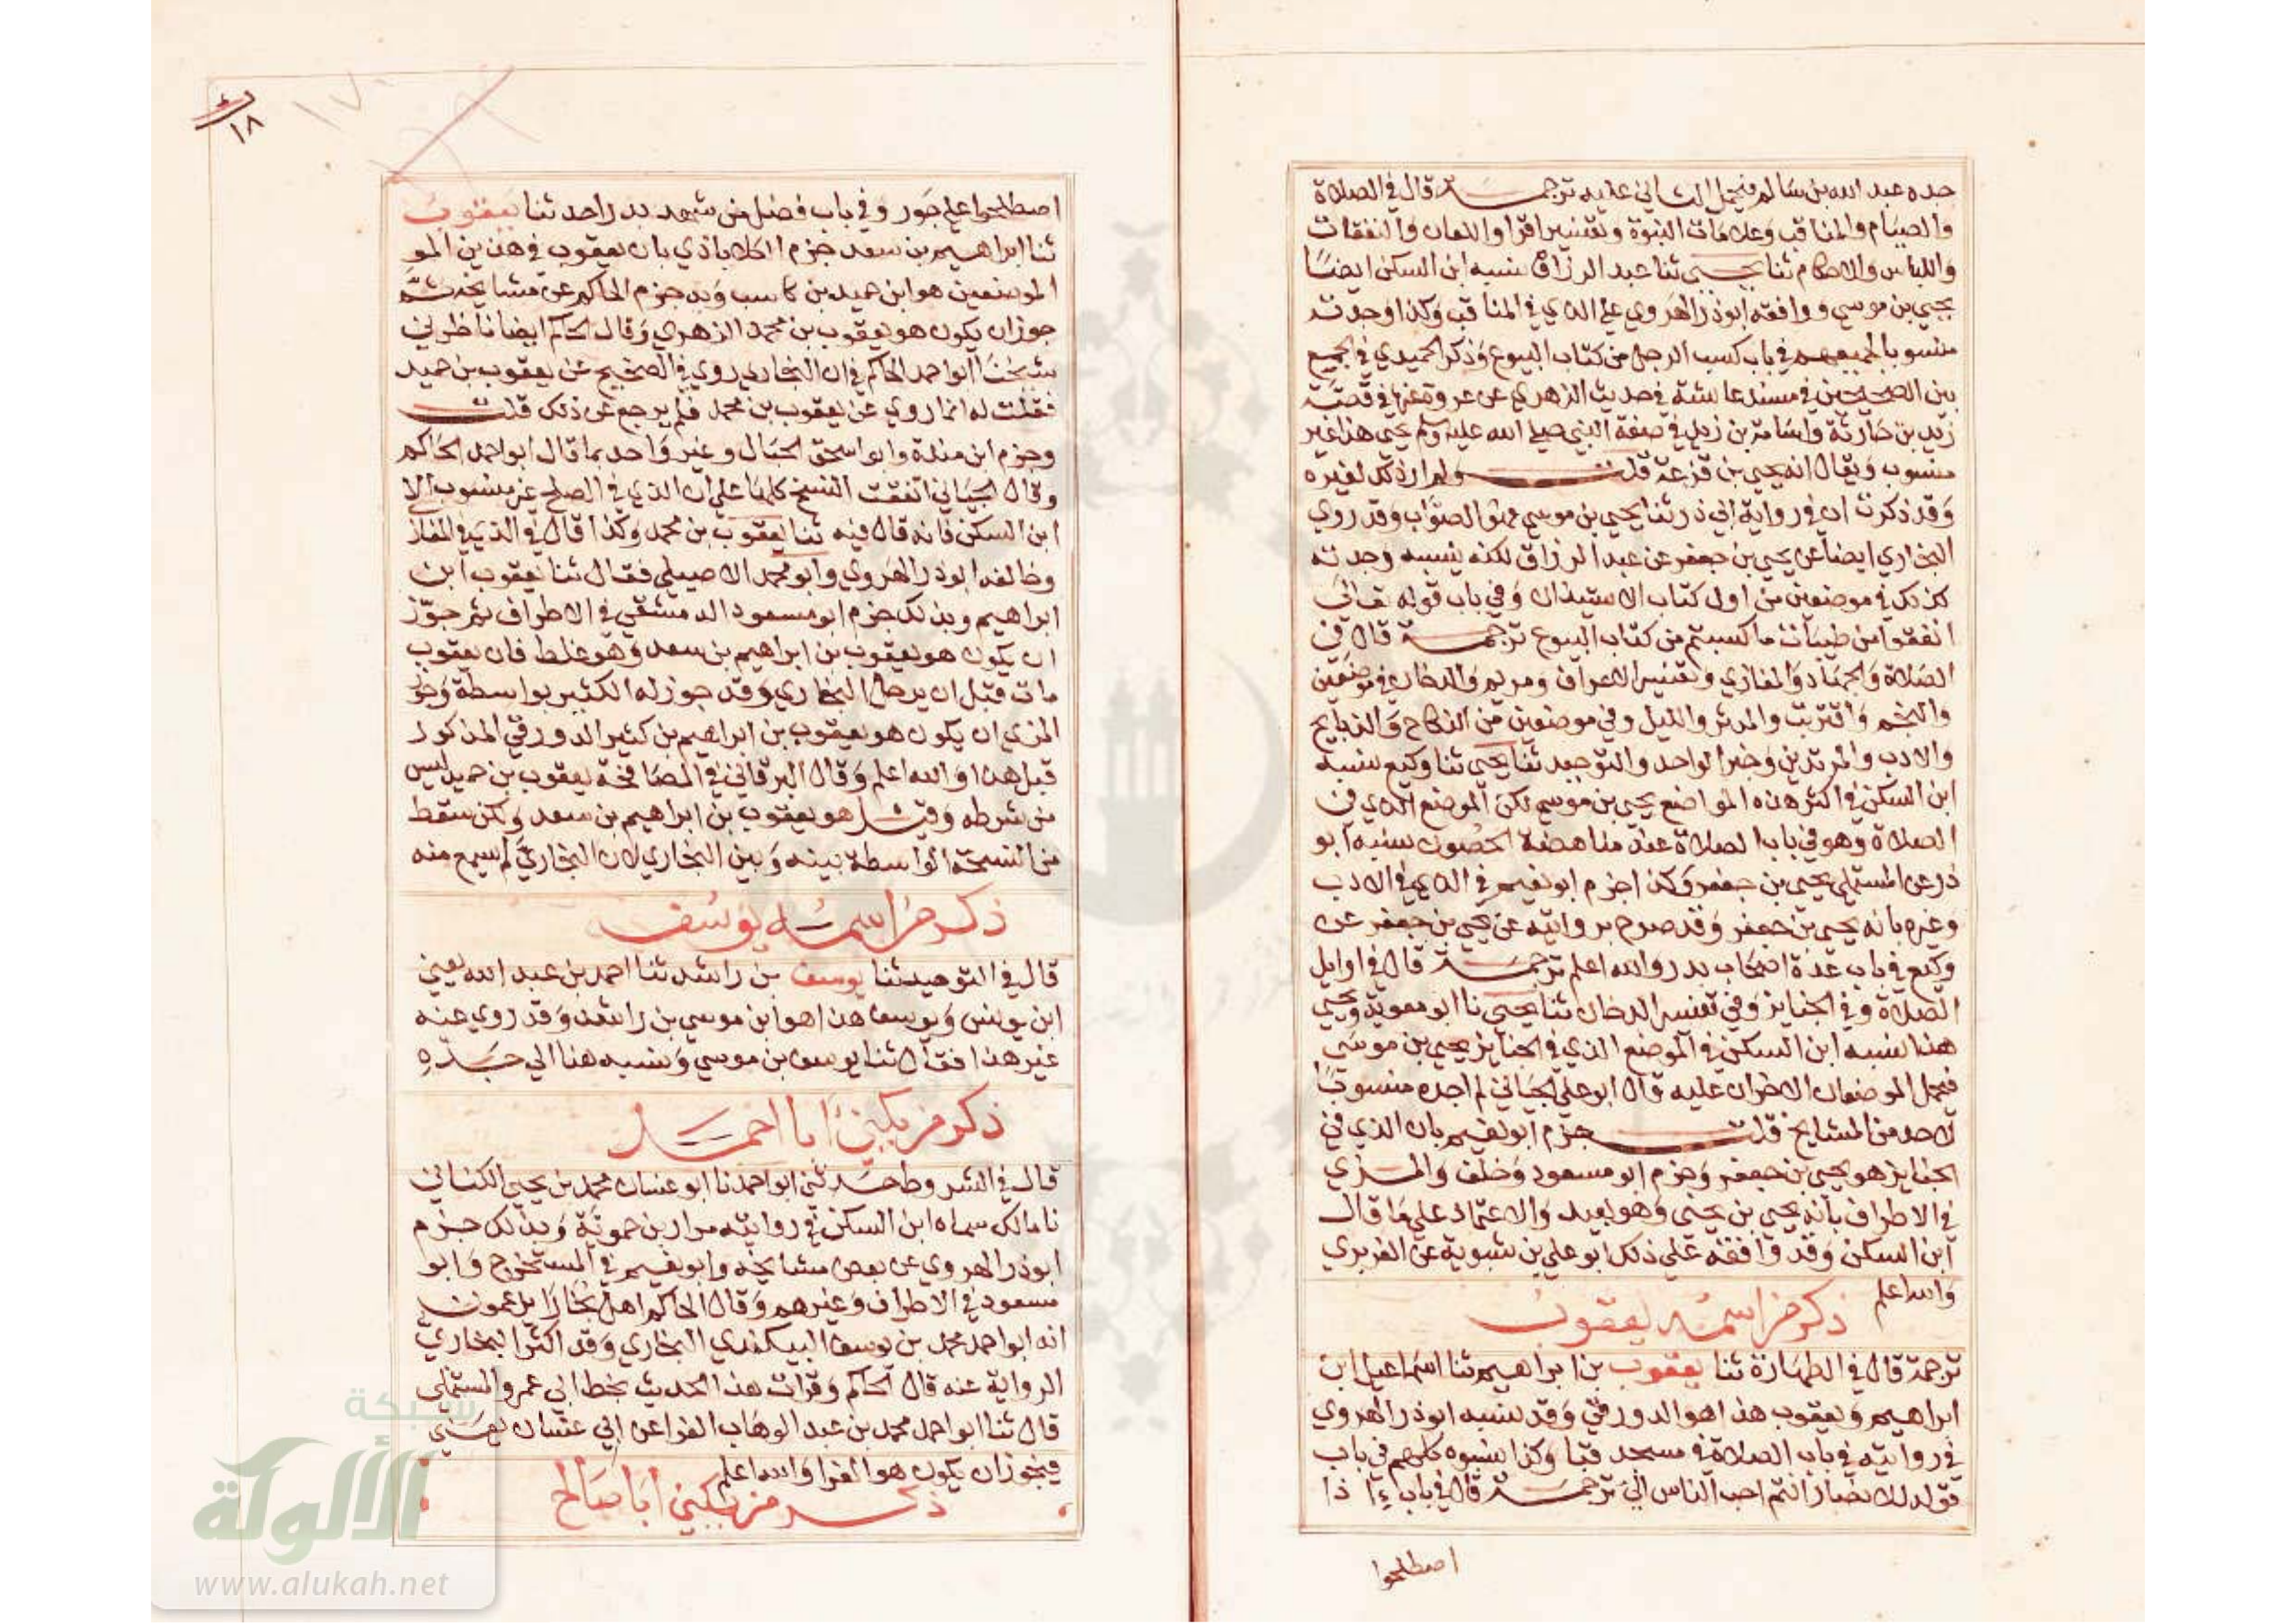 جده عبد الله بن سالم فيحمل الثاني عليه ترجمة قال في الصلاة
والصيام والمناقب وعلامات النبوة وتفسير اقرا واللعان والنفقات
واللباس والاحكام ثنا يحيى ثنا عبد الرزاق نسبه ابن السكن ايضا
يحيى بن موسى ووافقه ابوذر الهروي على الذي في المناقب وكذا وجدته
منسوبا لجميعهم في باب كسب الرجل من كتاب البيوع وذكر الحميدي في الجمع
بين الصحيحين في مسند عائشة في حديث الزهري عن عروة عنها في قصة
زيد بن حارثة واسامة بن زيد في صفة النبي صلى الله عليه وسلم يحيى هذا غير
منسوب ويقال انه يحيى بن قزعة قلت ولم ار ذلك لغيره
وقد ذكرت ان في رواية ابي ذر ثنا يحيى بن موسى فهو الصواب وقد روى
البخاري ايضا عن يحيى بن جعفر عن عبد الرزاق لكنه ينسبه وجدته
كذلك في موضعين من اول كتاب الاستيذان وفي باب قوله تعالى
انفقوا من طيبات ما كسبتم من كتاب البيوع ترجمة قال في
الصلاة والجهاد والمغازي وتفسير الاعراف ومريم والدخان في موضعين
والنجم واقتربت والمدثر والليل وفي موضعين من النكاح والذبايح
والادب والمرتدين وخبر الواحد والتوحيد ثنا يحيى ثنا وكيع نسبه
ابن السكن في اكثر هذه المواضع يحيى بن موسى لكن الموضع الذي في
الصلاة وهو في باب الصلاة عند مناهضة الحصون نسبه ابو
ذر عن المستملي يحيى بن جعفر وكذا جزم ابو نعيم في الذي في الادب
وغيره بانه يحيى بن جعفر وقد صرح بروايته عن يحيى بن جعفر عن
وكيع في باب عدة اصحاب بدر والله اعلم ترجمة قال في اوايل
الصلاة وفي الجنايز وفي تفسير الدخان ثنا يحيى نا ابو معوية ويحيى
هذا نسبه ابن السكن في الموضع الذي في الجنايز يحيى بن موسى
فيحمل الموضعان الاخران عليه قال ابو علي الجياني لم اجده منسوبا
لاحد من المشايخ قلت جزم ابو نعيم بان الذي في
الجنايز هو يحيى بن جعفر وجزم ابو مسعود وخلف والمزي
في الاطراف بانه يحيى بن يحيى وهو بعيد والاعتماد على ما قال
ابن السكن وقد وافقه على ذلك ابو علي بن شبوية عن الفربري
والله اعلم
ذكر من اسمه يعقوب
ترجمة قال في الطهارة ثنا يعقوب بن ابراهيم ثنا اسماعيل ابن
ابراهيم ويعقوب هذا هو الدورقي وقد نسبه ابوذر الهروي
في روايته في باب الصلاة في مسجد قبا وكذا نسبوه كلهم في باب
قوله للانصار انتم احب الناس الي ترجمة قال في باب اذا
اصطلحوا
اصطلحوا على جور وفي باب فضل من شهد بدرا حدثنا يعقوب
ثنا ابراهيم بن سعد جزم الكلاباذي بان يعقوب في هذين المو
الموضعين هو ابن حميد بن كاسب وبه جزم الحاكم عن مشايخه ثم
جوز ان يكون هو يعقوب بن محمد الزهري وقال الحاكم ايضا ناظرني
شيخنا ابو احمد الحاكم في ان البخاري روى في الصحيح عن يعقوب بن حميد
فقلت له انما روى عن يعقوب بن محمد فلم يرجع عن ذلك قلت
وجزم ابن مندة وابو اسحق الحبال وغير واحد بما قال ابو احمد الحاكم
وقال الجياني اتفقت النسخ كلها على ان الذي في الصلح غير منسوب الا
ابن السكن فانه قال فيه ثنا يعقوب بن محمد وكذا قال في الذي في المغاز
وخالفه ابو ذر الهروي وابو محمد الاصيلي فقال ثنا يعقوب ابن
ابراهيم وبذلك جزم ابو مسعود الدمشقي في الاطراف ثم جوز
ان يكون هو يعقوب بن ابراهيم بن سعد وهو غلط فان يعقوب
مات قبل ان يرحل البخاري وقد جوز له الكثير بواسطة وجوز
المزي ان يكون هو يعقوب بن ابراهيم بن كثير الدورقي المذكور
قبل هذا والله اعلم وقال البرقاني في المصافحة يعقوب بن حميد ليس
من شرطه وقيل هو يعقوب بن ابراهيم بن سعد ولكن سقط
من النسخة الواسطة بينه وبين البخاري لان البخاري لم يسمع منه
ذكر من اسمه يوسف
قال في التوحيد ثنا يوسف بن راشد ثنا احمد بن عبد الله يعني
ابن يونس ويوسف هذا هو ابن موسى بن راشد وقد روى عنه
غير هذا فقال ثنا يوسف بن موسى ونسبه هنا الى جده
ذكر من يكنى ابا احمد
قال في الشروط حدثني ابو احمد نا ابو غسان محمد بن يحيى الكناني
نا مالك سماه ابن السكن في روايته مرار بن حموية وبذلك جزم
ابو ذر الهروي عن بعض مشايخه وابو نعيم في المستخرج وابو
مسعود في الاطراف وغيرهم وقال الحاكم اهل بخارا يزعمون
انه ابو احمد محمد بن يوسف البيكندي البخاري وقد اكثر البخاري
الرواية عنه قال الحاكم وقرات هذا الحديث بخط ابي عمرو المستملي
قال ثنا ابو احمد محمد بن عبد الوهاب الفرا عن ابي غسان يعني
فيجوز ان يكون هو الفرا والله اعلم
ذكر من يكنى ابا صالح
١٨
١٧٠
شبكة
الألوكة
www.alukah.net